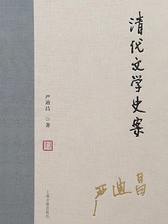 清代文学史案
严迪昌 著
严迪昌